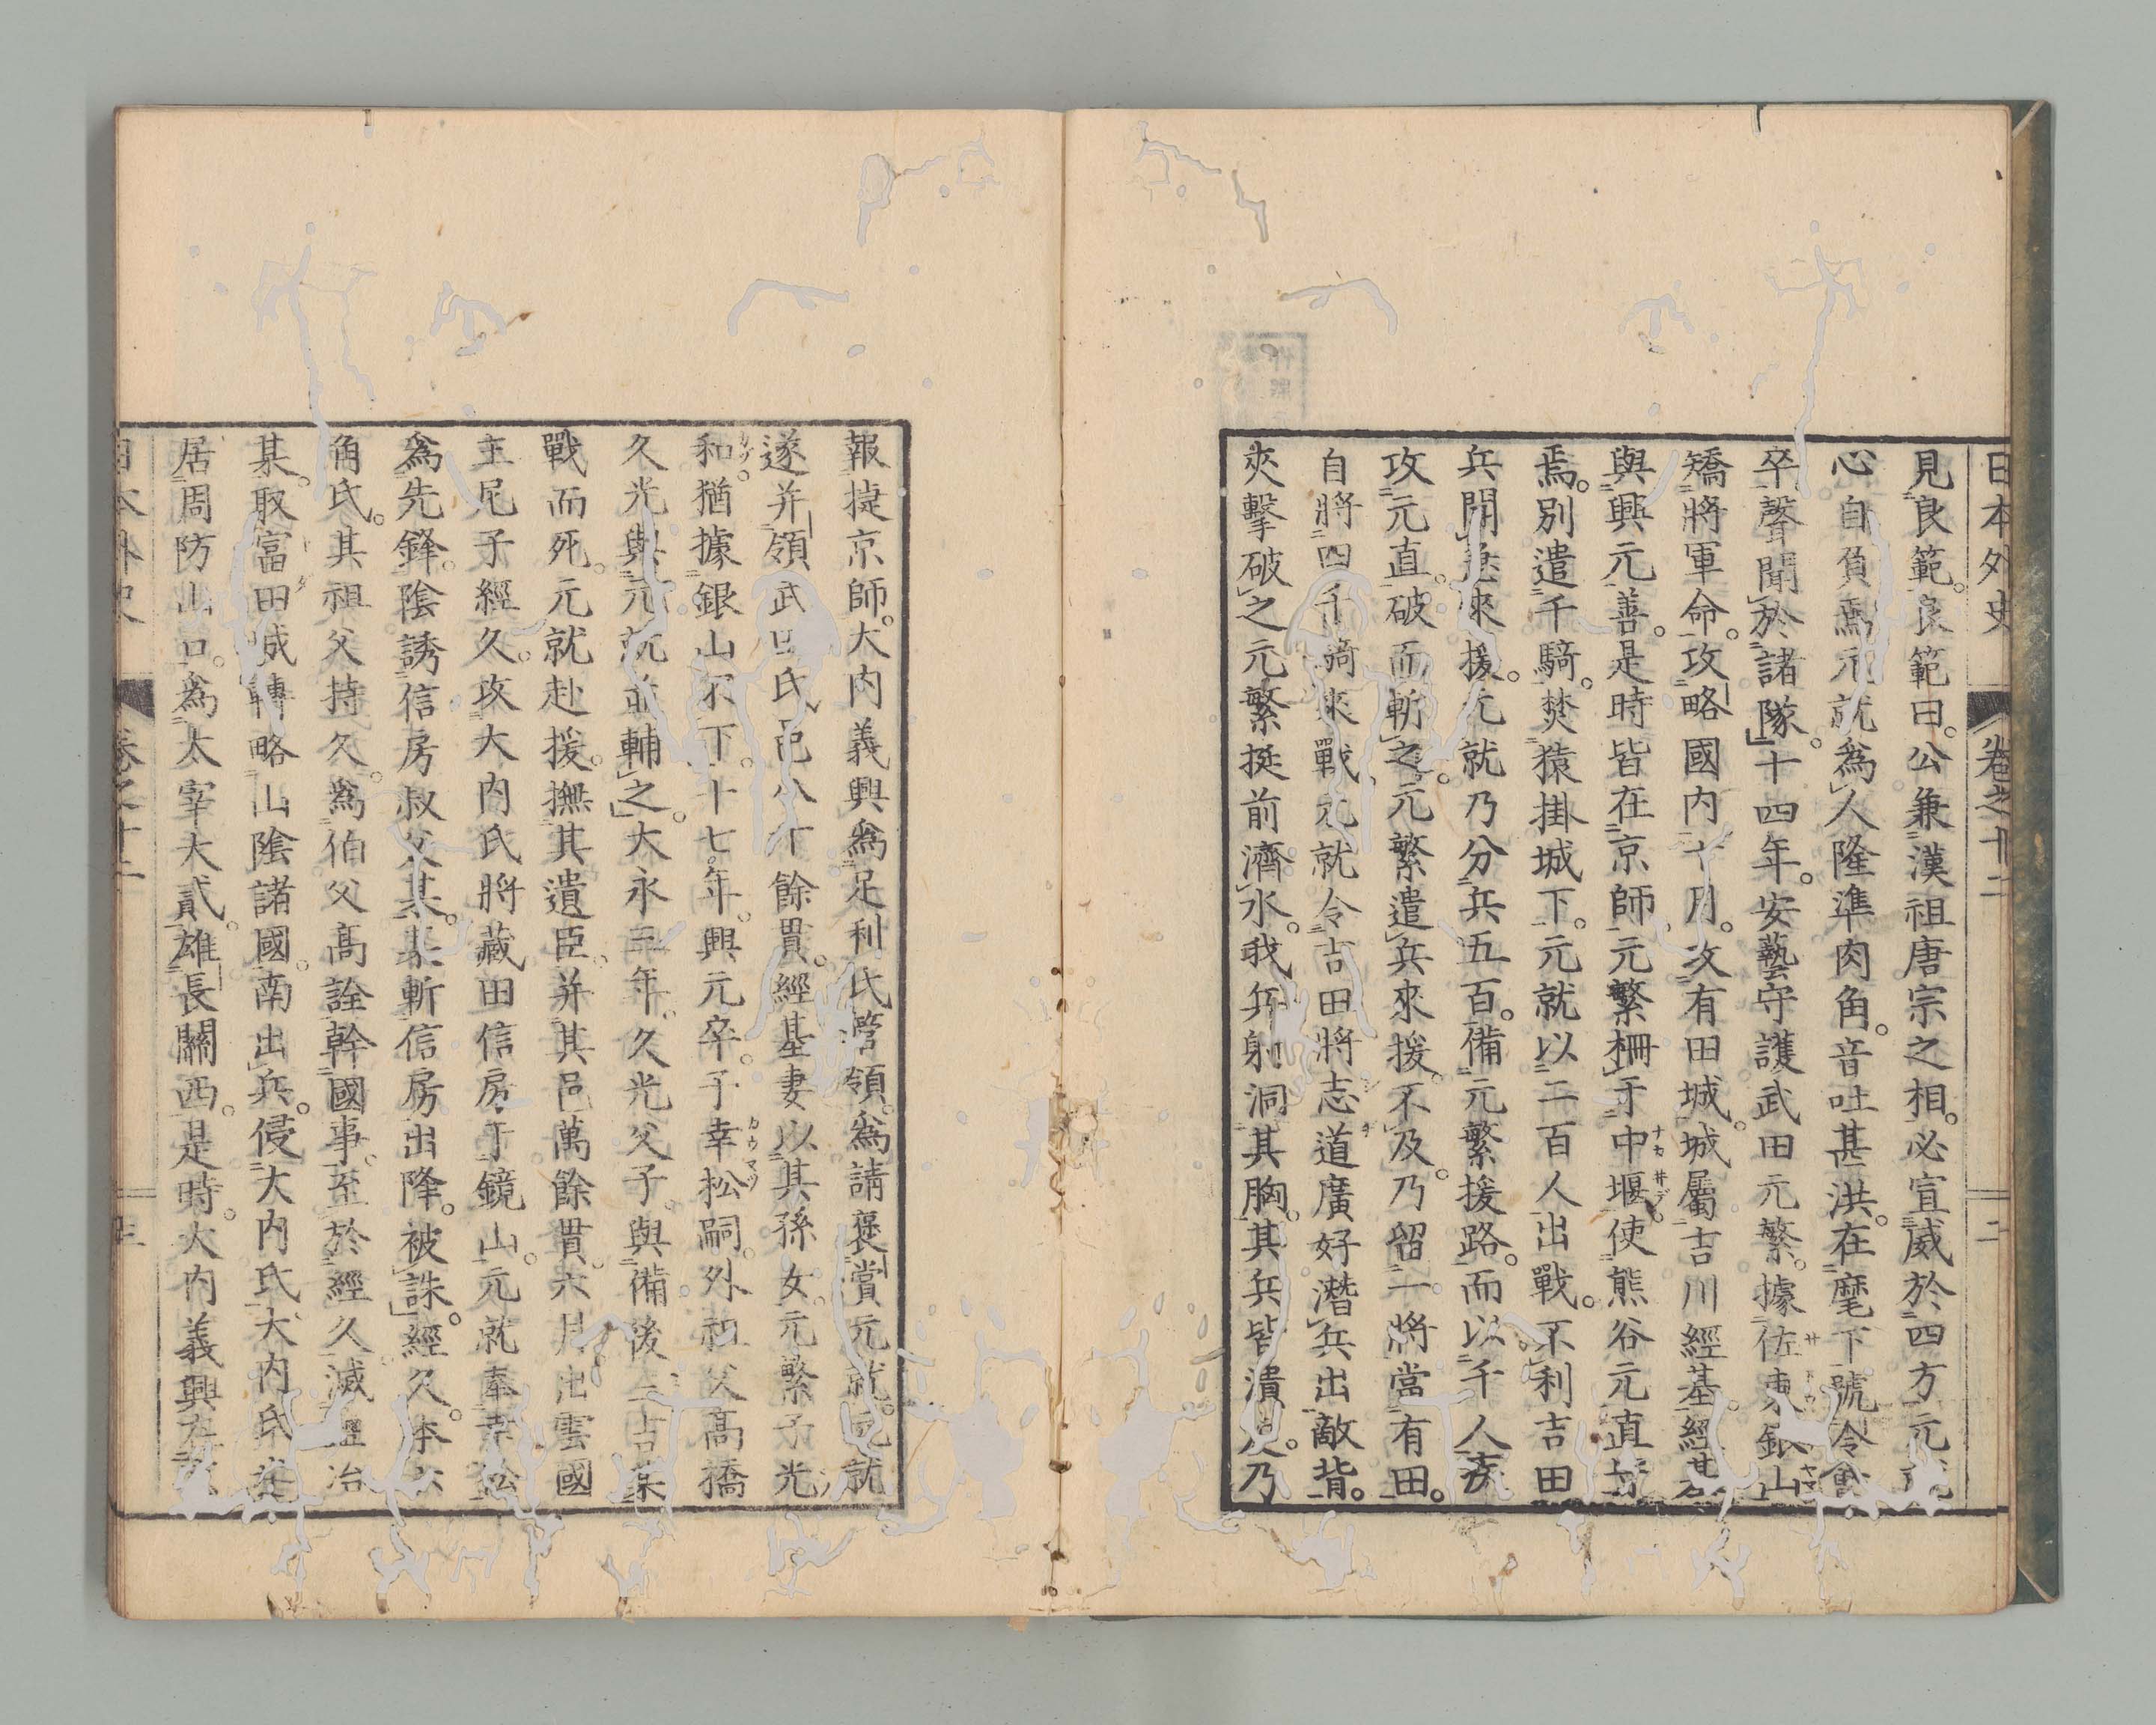 日本外史 卷之十二 二
見良範。良範曰。公兼漢祖唐宗之相。必宣威於四方。元就
心自負焉。元就爲人隆準肉角。音吐甚洪。在麾下號令
卒聲聞於諸隊。十四年。安藝守護武田元繁。據佐東銀山
矯將軍命。攻略國内。十月。攻有田城。城屬吉川經基。經基
與興元善。是時皆在京師。元繁柵于中堰。使熊谷元直
焉。別遣千騎。焚猿掛城下。元就以二百人出戰。不利。吉田
兵開急來援。元就乃分兵五百。備元繁援路。而以千人疾
攻元直。破而斬之。元繁遣兵來援。不及。乃留一將當有田。
自將四千騎來戰。元就令吉田將志道廣好潛兵出敵背。
夾擊破之。元繁挺前濟水。我兵射洞其胸。其兵皆潰。乃
報捷京師。大内義興爲足利氏管領。爲請褒賞元就。元就
遂并領武田氏邑八千餘貫。經基妻以其孫女。元繁子光
和。猶據銀山不下。十七年。興元卒。子幸松嗣。外祖父高橋
久光與元就並輔之。大永三年。久光父子。與備後三吉某
戰而死。元就赴援。撫其遺臣。并其邑萬餘貫。六月。出雲國
主尼子經久。攻大内氏將藏田信房于鏡山。元就奉幸松
爲先鋒。陰誘信房叔父某。某斬信房出降。被誅。經久。本六
角氏。其祖父持久。爲伯父高詮幹國事。至於經久滅鹽冶
某。取富田城。轉略山陰諸國。南出兵。侵大内氏。大内氏世
居周防山口。爲太宰大貳。雄長關西。是時。大内義興在
日本外史 卷之十二 三